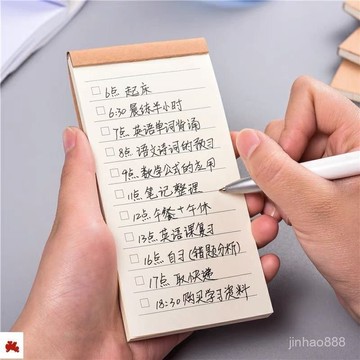 6点 起床
6:30 晨练半小时
7点 英语单词背诵
8点 语文诗词的预习
9点 数学公式的应用
11点 笔记整理
12点 午餐+午休
13点 英语课复习
16点 自习(错题分析)
17点 取快递
18:30 购买学习资料
jinhao888